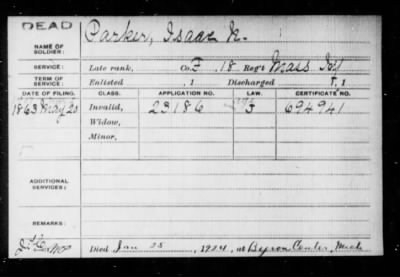 DEAD
NAME OF SOLDIER: Parker, Isaac N.
SERVICE: Late rank, Co. F, 18 Reg't Mass Inf
TERM OF SERVICE: Enlisted , 1 Discharged , 1
DATE OF FILING. CLASS. APPLICATION NO. LAW. CERTIFICATE NO.
1863 May 20 Invalid, 23186 694941
Widow,
Minor,
ADDITIONAL SERVICES:
REMARKS:
Died Jan 25, 1924, at Byron Center, Mich